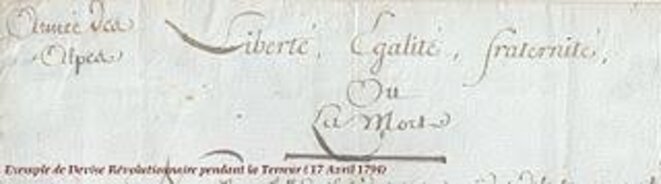 Armée des
Alpes
Liberté, Egalité, fraternité,
Ou
La Mort
Exemple de Devise Révolutionnaire pendant la Terreur (17 Avril 1794)